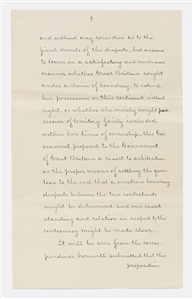 9
and without any conviction as to the
final merits of the dispute, but anxious
to learn in a satisfactory and conclusive
manner whether Great Britain sought
under a claim of boundary, to extend
her possessions on this continent without
right, or whether she merely sought pos-
session of territory fairly included
within her lines of ownership, this Gov-
ernment proposed to the Government
of Great Britain a resort to arbitration
as the proper means of settling the ques-
tion to the end that a vexatious boundary
dispute between the two contestants
might be determined and our exact
standing and relation in respect to the
controversy might be made clear.
It will be seen from the corres-
pondence herewith submitted that this
proposition